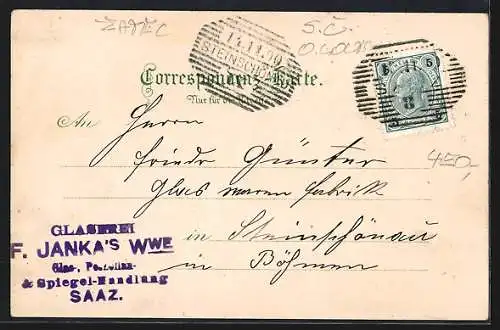 ZATEC
S.Č.
14.11.00
STEINSCHÖNAU
Correspondenz-Karte.
Nur für die
5 5
An Herrn
Friedr Günter
Glas waren fabrik
in Steinschönau
in Böhmen
450,
GLASEREI
F. JANKA'S WWE
Glas-, Porzellan-
& Spiegel-Handlung
SAAZ.